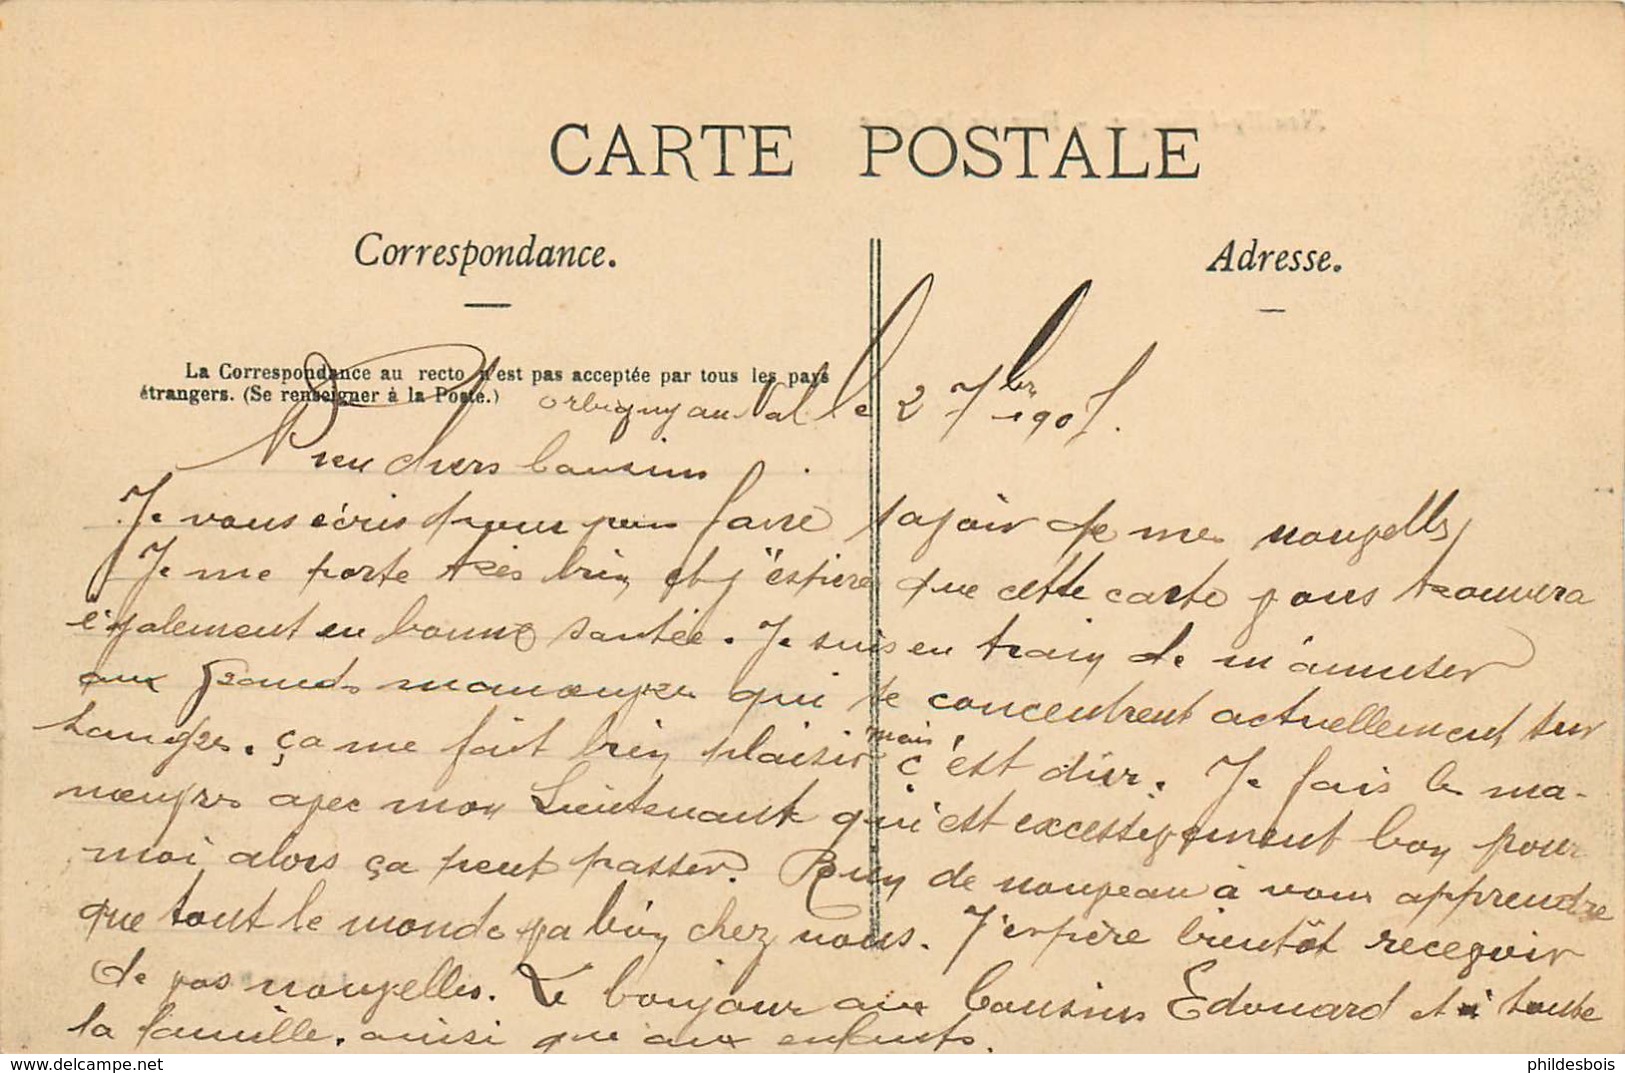 CARTE POSTALE
Correspondance.
Adresse.
La Correspondance au recto n'est pas acceptée par tous les pays
étrangers. (Se renseigner à la Poste.)
Orbigny au Val le 2 7bre 1907.
Bien chers Cousins
Je vous écris pour faire savoir de mes nouvelles
Je me porte très bien et j'espère que cette carte vous trouvera
également en bonne santée. Je suis en train de m'amuser
aux grandes manoeuvres qui se concentrent actuellement sur
Langres. ça me fait bien plaisir mais c'est dur. Je fais les ma-
noeuvres avec mon Lieutenant qui est excessivement bon pour
moi alors ça peut passer. Rien de nouveau à vous apprendre
que tout le monde va bien chez nous. J'espère bientôt recevoir
de vos nouvelles. Le bonjour aux Cousins Edouard et à toute
la famille. ainsi que aux enfants.
phildesbois
www.delcampe.net